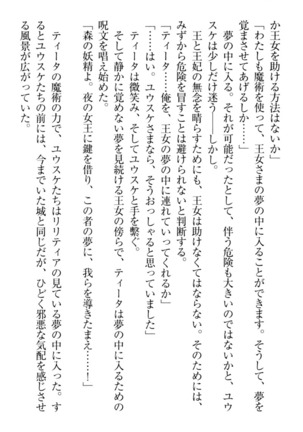 か王女を助ける方法はないか」
「わたしも魔術を使って、王女さまの夢の中に入ることができます。そうして、夢を
覚まさせてあげるしか……」
夢の中に入る。それが可能だったとして、伴う危険も大きいのではないかと、ユウ
スケは少しだけ迷う――しかし。
王と王妃の無念を晴らすためにも、王女は助けなくてはならない。そのためには、
みずから危険を冒すことは避けられないと判断する。
「ティータ……俺を、王女の夢の中に連れていってくれるか」
「……はい。ユウスケさまなら、そうおっしゃると思っていました」
ティータは微笑み、そしてユウスケと手を繋ぐ。
そして静かに覚めない夢を見続ける王女の傍らで、ティータは夢の中に入るための
呪文を唱え始めた。
「森の妖精よ。夜の女王に鍵を借り、この者の夢に、我らを導きたまえ………」
ティータの魔術の力で、ユウスケたちはリリティアの見ている夢の中に入った。す
るとユウスケたちの前には、今までいた城と同じだが、ひどく邪悪な気配を感じさせ
る風景が広がっていた。